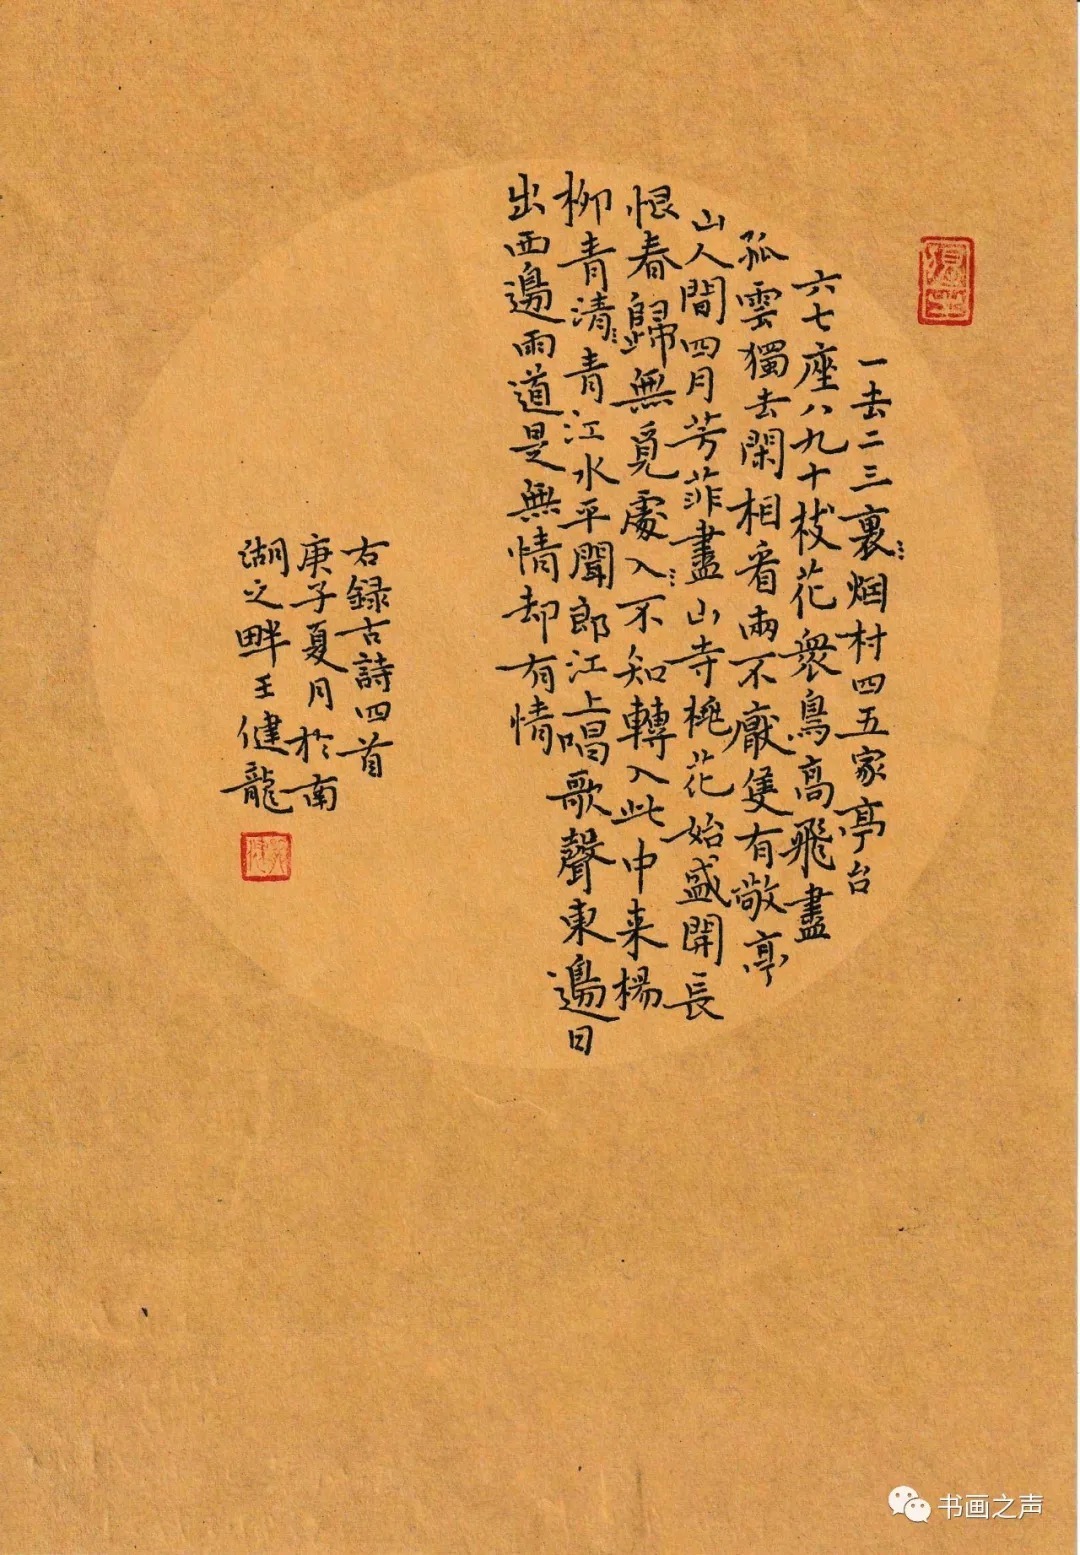 一去二三裏⺀烟村四五家亭台
六七座八九十枝花衆鳥高飛盡
孤雲獨去閑相看兩不厭隻有敬亭
山人間四月芳菲盡山寺桃花始盛開長
恨春歸無覓處入⺀不知轉入此中来楊
柳青清⺀青江水平聞郎江上唱歌聲東邊日
出西邊雨道是無情却有情
右録古詩四首
庚子夏月於南
湖之畔王健龍
书画之声